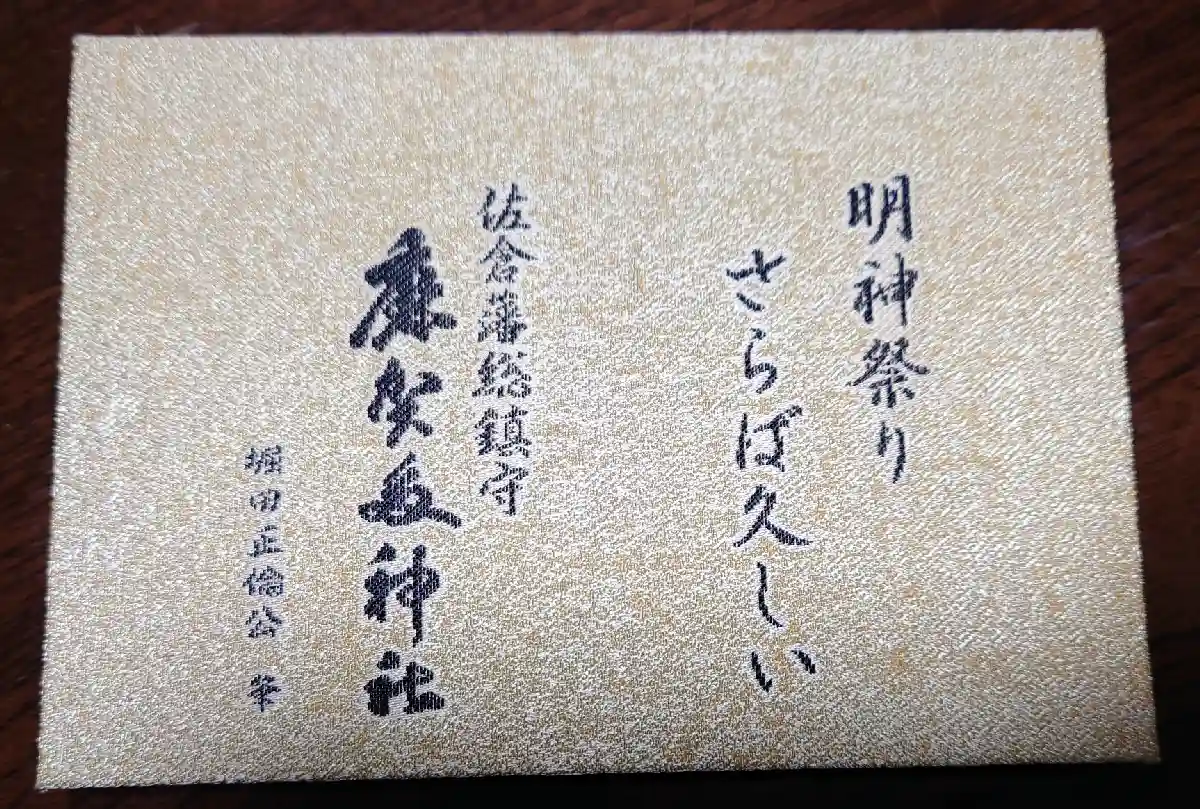 明神祭り
さらば久しい
佐倉藩総鎮守
麻賀多神社
堀田正倫公 筆